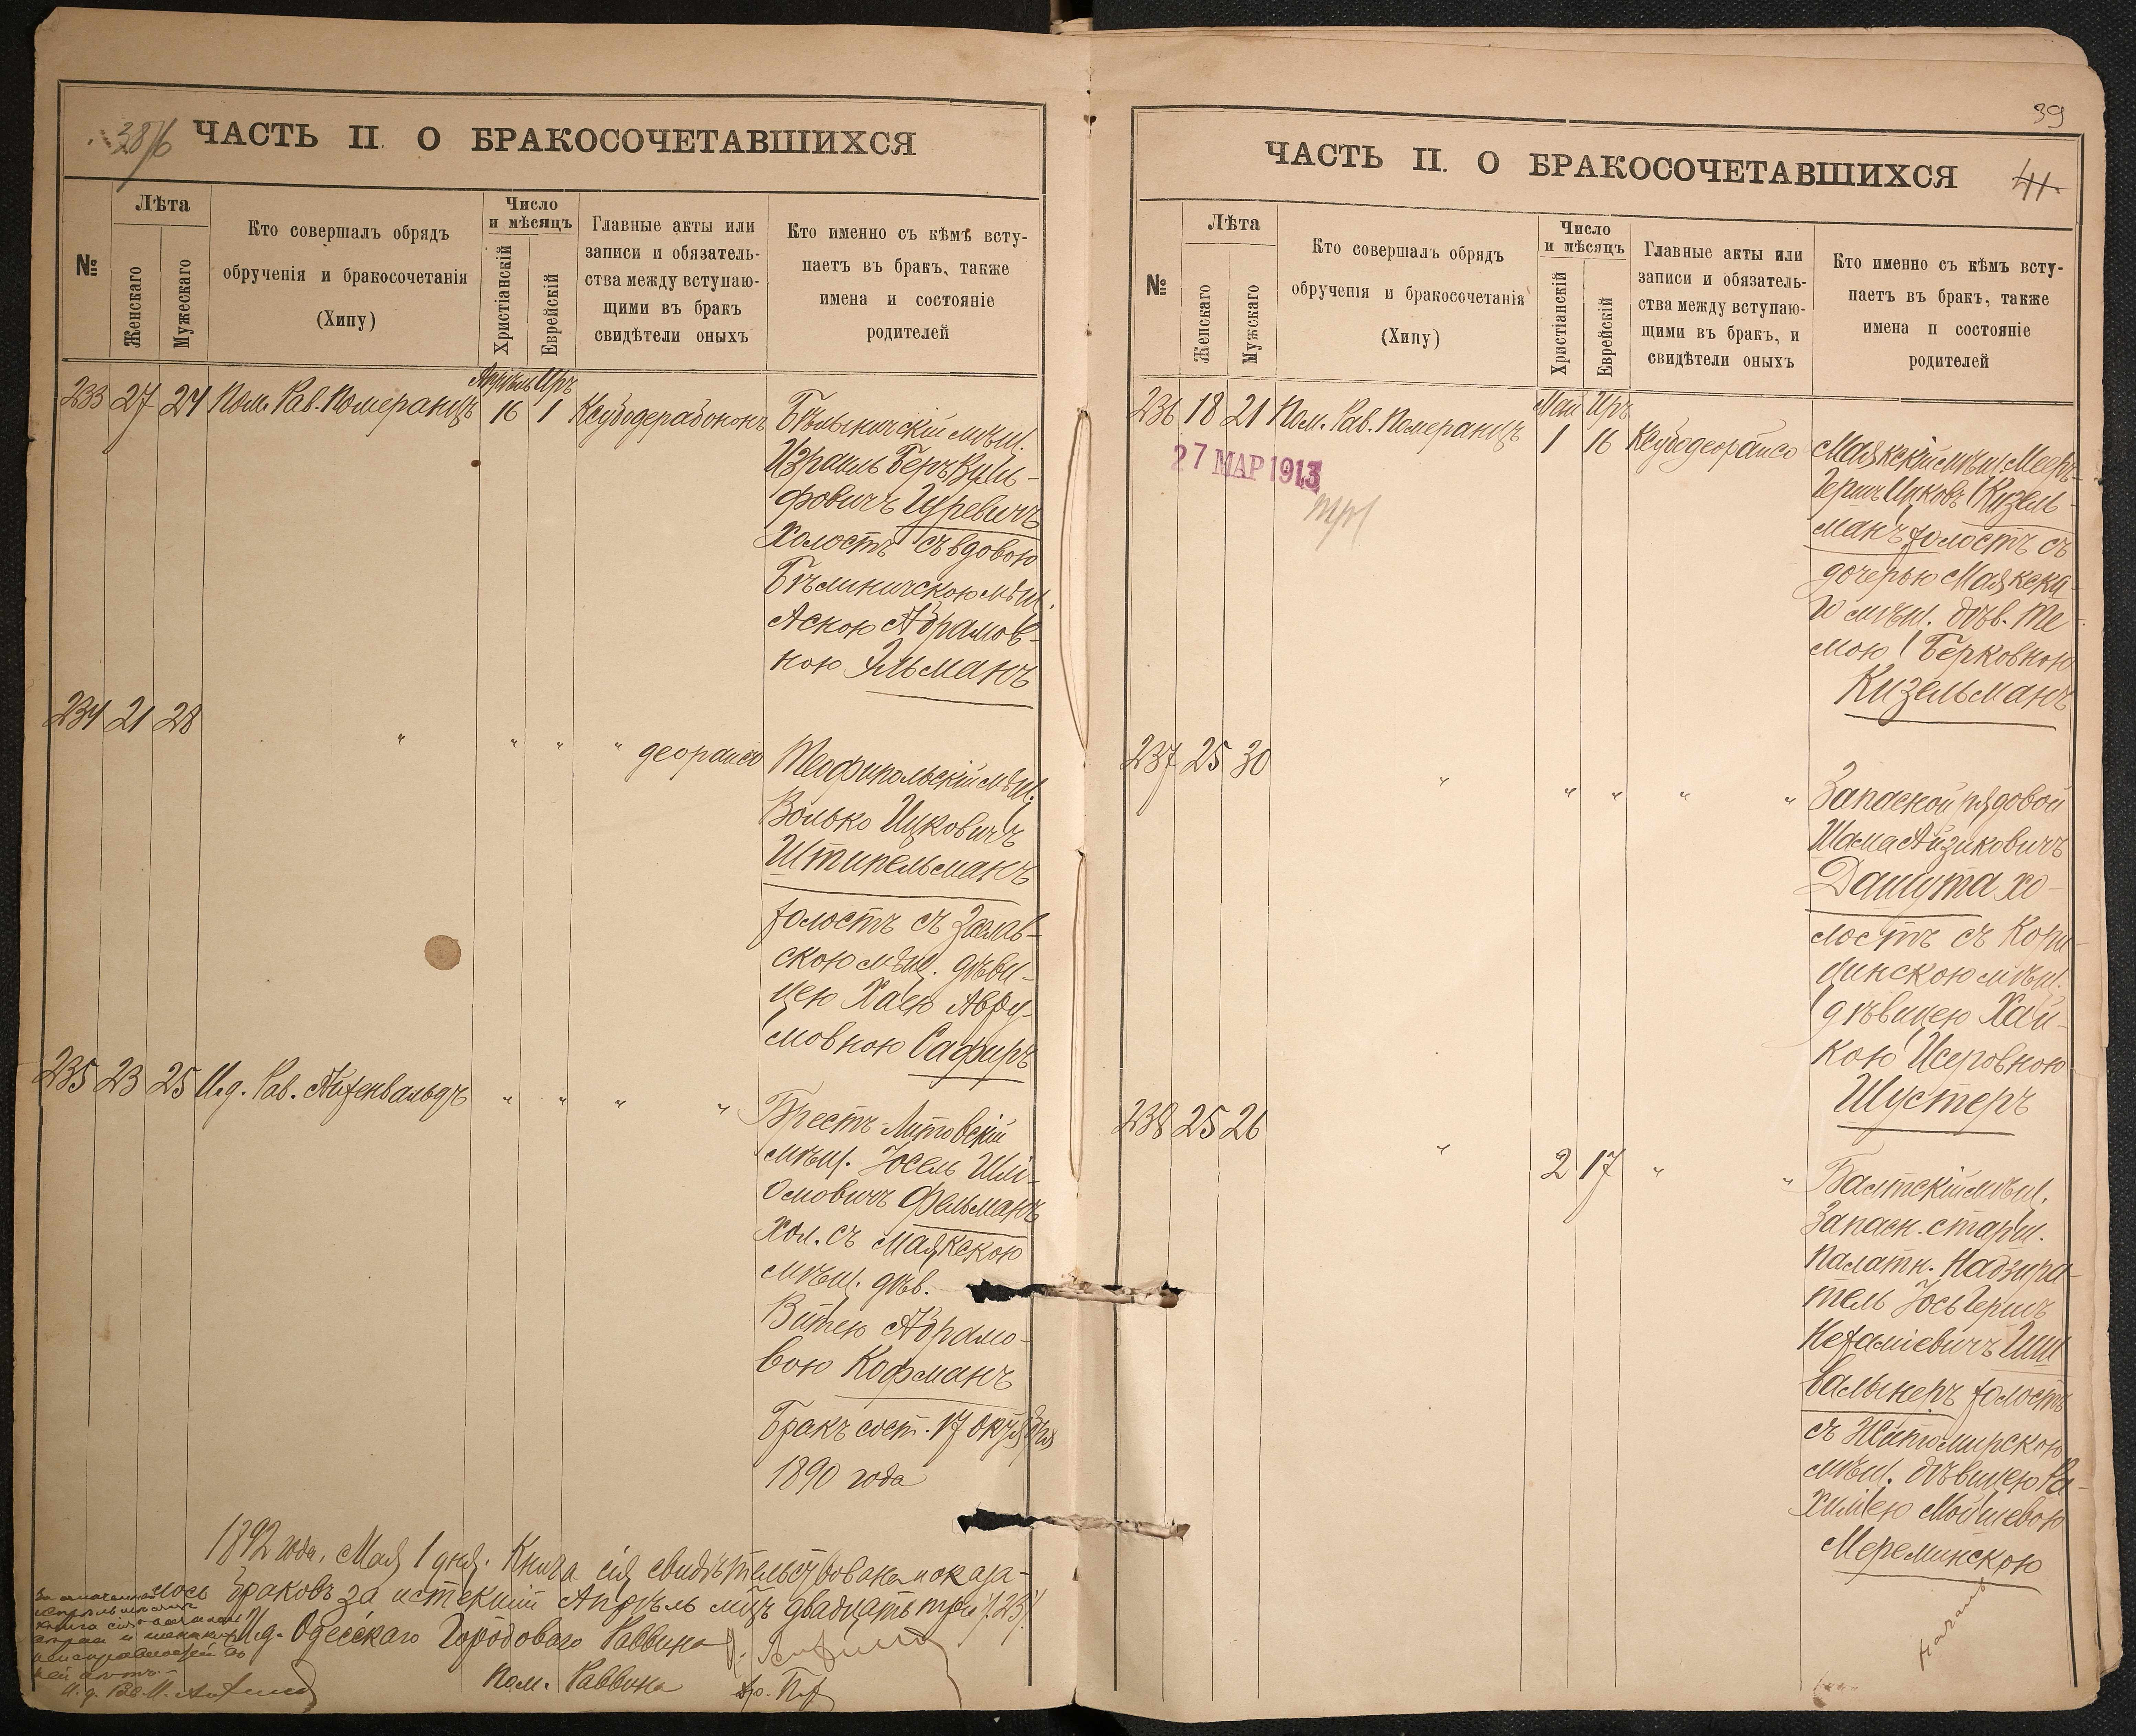 38/6
ЧАСТЬ II. О БРАКОСОЧЕТАВШИХСЯ
№
Лѣта
Женскаго
Мужескаго
Кто совершалъ обрядъ
обрученія и бракосочетанія
(Хипу)
Число
и мѣсяцъ
Христіанскій
Еврейскій
Главные акты или
записи и обязатель-
ства между вступаю-
щими въ бракъ
свидѣтели оныхъ
Кто именно съ кѣмъ всту-
паетъ въ бракъ, также
имена и состояніе
родителей
Апрѣль Иръ
233 27 24 Пом. Рав. Померанцъ 16 1
Бѣлыничскій мѣщ.
Израиль Беръ Вуль-
фовичъ Гуревичъ
Холостъ съ вдовою
Бѣлиничскою мѣщ.
Аскою Абрамов-
ною Эльманъ
234 21 28 " " " " деорайсо
Теофипольскій мѣщ.
Волько Ицковичъ
Штипельманъ
холостъ съ Заслав-
скою мѣщ. дѣви-
цею Хаею Авру-
мовною Сафиръ
235 23 25 И.д. Рав. Айхенвальдъ " " " "
Брестъ-Литовскій
мѣщ. Іосель Шлі-
омовичъ Фельманъ
Хол. съ Маякскою
мѣщ. дѣв.
Витею Абрамо-
вою Кофманъ
Бракъ сост. 17 октября
1890 года
1892 года, Мая 1 дня. Книга сія свидѣтельствована и оказа-
лось браковъ за истекшій Апрѣль мцъ двадцать три /23/.
И.д. Одесскаго Городоваго Раввина
Пом. Раввина
39
ЧАСТЬ II. О БРАКОСОЧЕТАВШИХСЯ
41
№
Лѣта
Женскаго
Мужскаго
Кто совершалъ обрядъ
обрученія и бракосочетанія
(Хипу)
Число
и мѣсяцъ
Христіанскій
Еврейскій
Главные акты или
записи и обязатель-
ства между вступаю-
щими въ бракъ, и
свидѣтели оныхъ
Кто именно съ кѣмъ всту-
паетъ въ бракъ, также
имена и состояніе
родителей
Май Иръ
236 18 21 Пом. Рав. Померанцъ 1 16 Ксубодеорайсо
27 МАР 1913
Маякскій мѣщ. Мееръ-
Гершъ Ицковъ Кизель-
манъ холостъ съ
дочерью Маякска-
го мѣщ. дѣв. Те-
мою Берковною
Кизельманъ
237 25 30 " " " " "
Запасной рядовой
Шама Айзиковичъ
Дашута хо-
лостъ съ Копи-
динскою мѣщ.
дѣвицею Хай-
кою Исеровною
Шустеръ
238 25 26 " 2 17 " "
Балтскій мѣщ.
Запасн. старш.
Палатн. Надзира-
тель Іось Гершъ
Нехаміевичъ Шп
вальнеръ холостъ
съ Житомирскою
мѣщ. дѣвицею Ра-
хилею Мошевою
Мереминскою